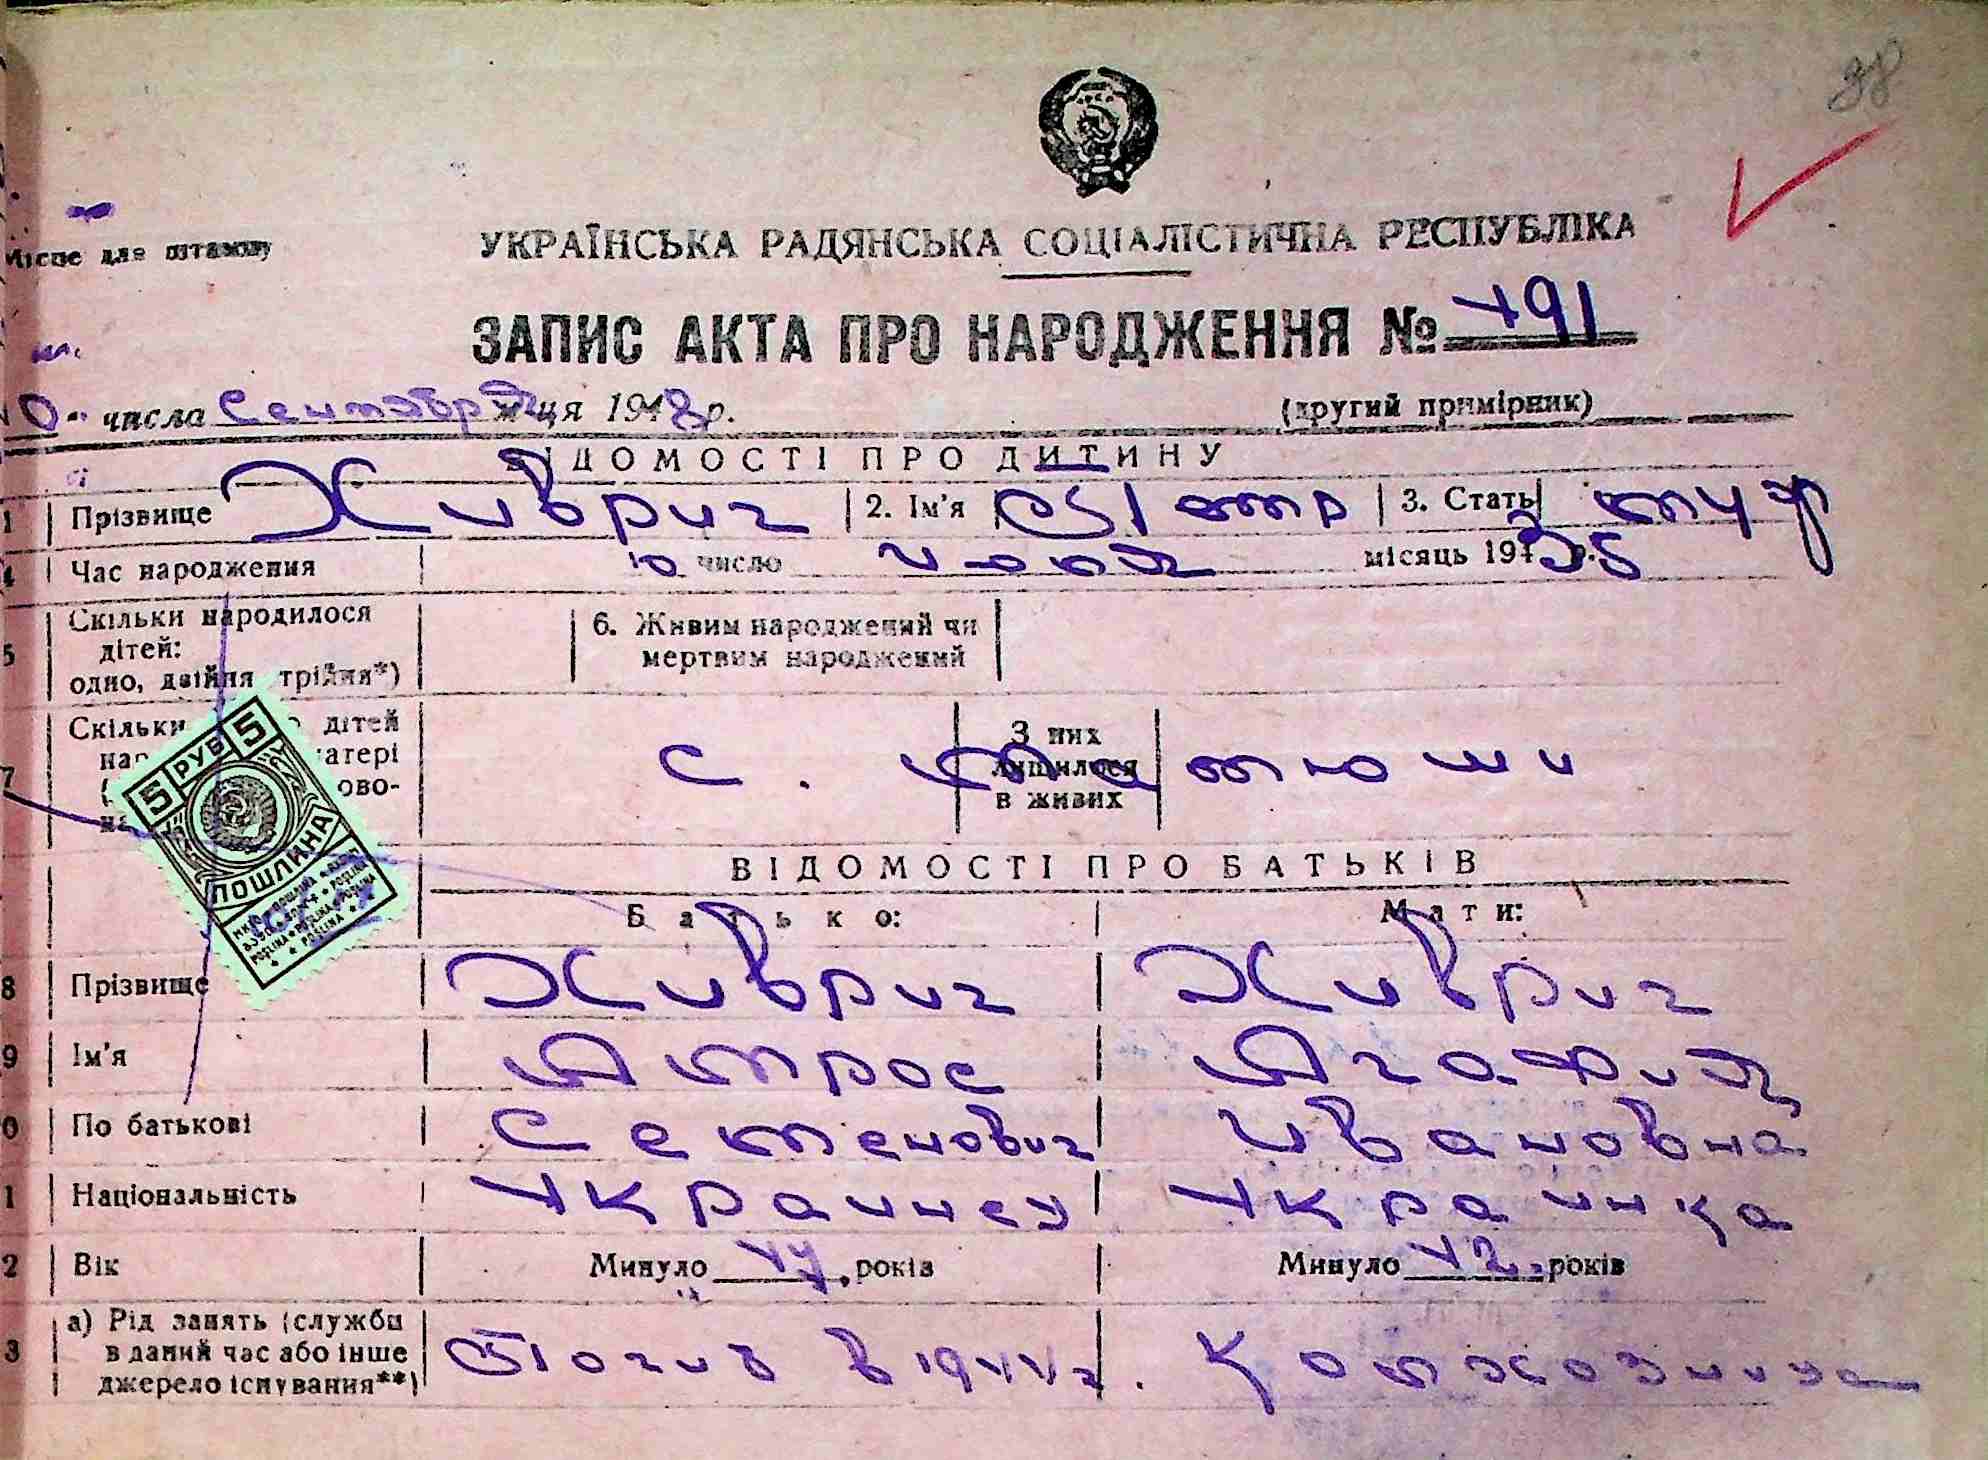 38
Місце для штампу
УКРАЇНСЬКА РАДЯНСЬКА СОЦІАЛІСТИЧНА РЕСПУБЛІКА
ЗАПИС АКТА ПРО НАРОДЖЕННЯ № 491
числа Сентября м-ця 1948 р. (другий примірник)
ВІДОМОСТІ ПРО ДИТИНУ
1 Прізвище Хиврич 2. Ім'я Петр 3. Стать муж
4 Час народження 10 число июля місяць 1935 р.
5 Скільки народилося дітей: одно, двійня трійня*) 6. Живим народжений чи мертвим народжений
7 Скільки дітей матері З них лишилося в живих
с. Матюши
5 РУБ 5
ПОШЛИНА
ВІДОМОСТІ ПРО БАТЬКІВ
Батько: Мати:
8 Прізвище Хиврич Хиврич
9 Ім'я Амрос Агафия
0 По батькові Семенович Ивановна
1 Національність Украинец Украинка
2 Вік Минуло 44 років Минуло 42 років
3 а) Рід занять (служби в даний час або інше джерело існування**) Погиб в 1944 г. Колхозница